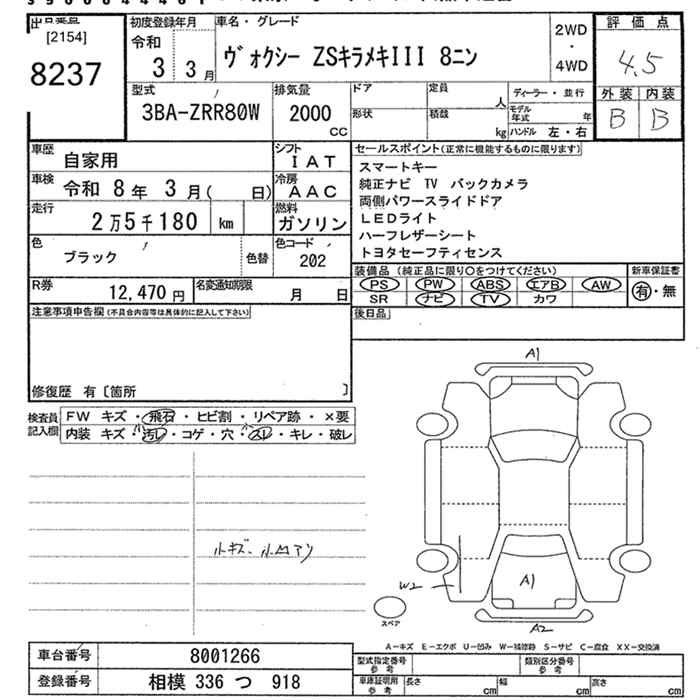 [2154]
8237
初度登録年月
令和
3 3月
車名・グレード
ヴォクシー ZSキラメキIII 8ニン
2WD
・
4WD
評価点
4.5
外装 内装
B B
型式
3BA-ZRR80W
排気量
2000
CC
ドア
定員
人
形状
積載
kg
ディーラー・並行
モデル年式 年
ハンドル 左・右
車歴
自家用
シフト
IAT
車検
令和 8年 3月( 日)
冷房
AAC
走行
2万5千180 km
燃料
ガソリン
色
ブラック
色替
色コード
202
R券
12,470円
名変通知期限
月 日
セールスポイント(正常に機能するものに限ります)
スマートキー
純正ナビ TV バックカメラ
両側パワースライドドア
LEDライト
ハーフレザーシート
トヨタセーフティセンス
装備品 (純正品に限り○をつけてください)
PS PW ABS エアB AW
SR ナビ TV カワ
新車保証書
有・無
後日品
注意事項申告欄(不具合内容等は具体的に記入して下さい)
修復歴 有〔箇所 〕
検査員記入欄
FW キズ・飛石・ヒビ割・リペア跡・×要
内装 キズ・小汚レ・コゲ・穴・小スレ・キレ・破レ
小キズ、小凹アリ
A1
W2
A1
A2
スペア
A-キズ E-エクボ U-凹み W-補修跡 S-サビ C-腐食 XX-交換済
車台番号
8001266
登録番号
相模 336 つ 918
型式指定番号
参考
類別区分番号
参考
車庫証明用
参考
長さ cm
幅 cm
高さ cm